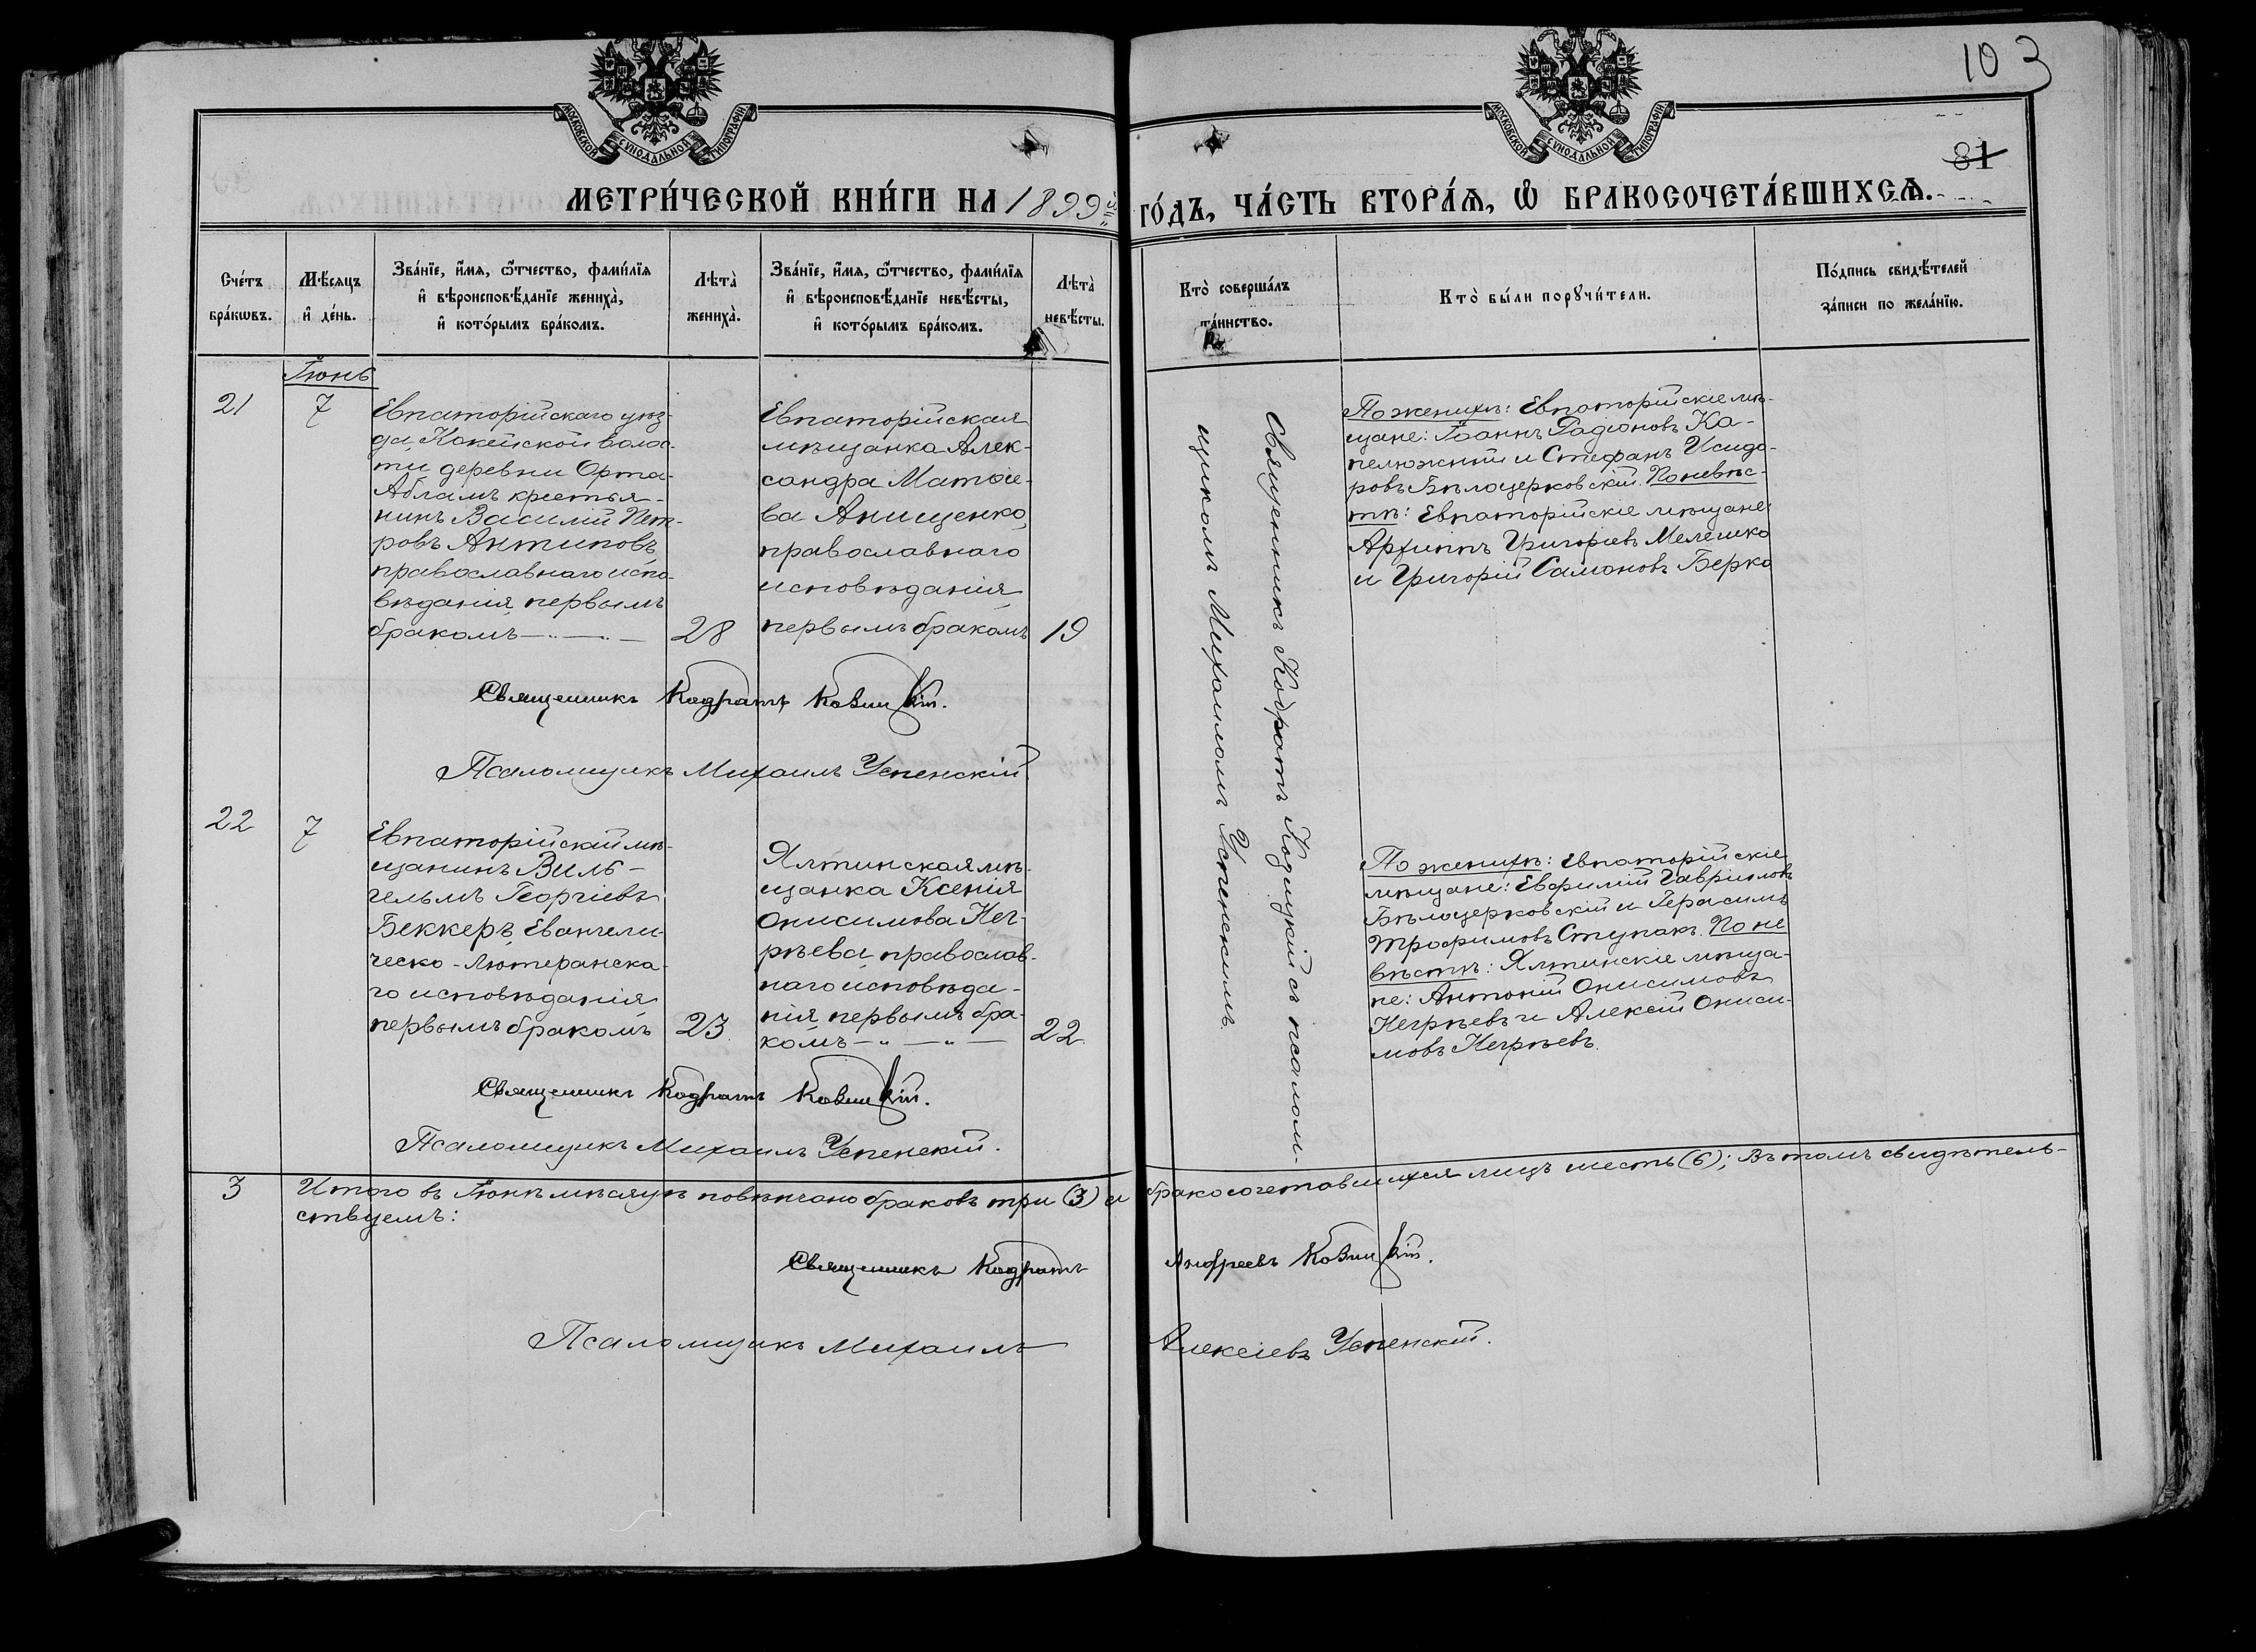 103
81
МОСКОВСКОЙ СѴНОДАЛЬНОЙ ТИПОГРАФІИ
МОСКОВСКОЙ СѴНОДАЛЬНОЙ ТИПОГРАФІИ
МЕТРИ́ЧЕСКОЙ КНИ́ГИ НА 1899й ГО́ДЪ, ЧА́СТЬ ВТОРА́Я, Ѡ БРАКОСОЧЕТА́ВШИХСѦ.
Сче́тъ
бра́кѡвъ.
Мѣ́сяцъ
и҆ де́нь.
Зва́нїе, и҆́мя, ѻ҆́тчество, фами́лїя
и҆ вѣроисповѣ́данїе жениха̀,
и҆ кото́рымъ бра́комъ.
Лѣта̀
жениха̀.
Зва́нїе, и҆́мя, ѻ҆́тчество, фами́лїя
и҆ вѣроисповѣ́данїе невѣ́сты,
и҆ кото́рымъ бра́комъ.
Лѣта̀
невѣ́сты.
Кто̀ соверша́лъ
та́инство.
Кто̀ бы́ли порꙋчи́тели.
По́дпись свидѣ́телей
за́писи по жела́нїю.
Іюнь
21
7
Евпаторійскаго уѣз-
да, Кокейской волос-
ти деревни Орта-
Абламъ крестья-
нинъ Василій Пет-
ровъ Антиповъ,
православнаго испо-
вѣданія, первымъ
бракомъ
28
Евпаторійская
мѣщанка Алек-
сандра Матѳе-
ва Анищенко,
православнаго
исповѣданія,
первымъ бракомъ
19
Священникъ Кодратъ Ковицкій с псалом-
щикомъ Михаиломъ Успенскимъ.
По женихѣ: Евпаторійскіе мѣ-
щане: Іоаннъ Радіоновъ Ка-
пелюжный и Стефанъ Исидо-
ровъ Бѣлоцерковскій. По невѣс-
тѣ: Евпаторійскіе мѣщане:
Архиппъ Григоріевъ Мелешко
и Григорій Самоновъ Берко
Священникъ Кодратъ Ковицкій.
Псаломщикъ Михаилъ Успенскій
22
7
Евпаторійскій мѣ-
щанинъ Виль-
гельмъ Георгіевъ
Беккеръ, Евангели-
ческо-Лютеранска-
го исповѣданія,
первымъ бракомъ
23
Ялтинская мѣ-
щанка Ксенія
Онисимова Нег-
рѣева, православ-
наго исповѣда-
нія, первымъ бра-
комъ
22
По женихѣ: Евпаторійскіе
мѣщане: Евфимій Гавриловъ
Бѣлоцерковскій и Герасимъ
Трофимовъ Ступакъ. По не
вѣстѣ: Ялтинскіе мѣща-
не: Антоній Онисимовъ
Негрѣевъ и Алексій Ониси-
мовъ Негрѣевъ.
Священникъ Кодратъ Ковицкій.
Псаломщикъ Михаилъ Успенскій.
3
Итого въ Іюнѣ мѣсяцѣ повѣнчано браковъ три (3) и бракосочетавшихся лицъ шесть (6); Въ томъ свидѣтель-
ствуемъ:
Священникъ Кодратъ Андреевъ Ковицкій.
Псаломщикъ Михаилъ Алексіевъ Успенскій.